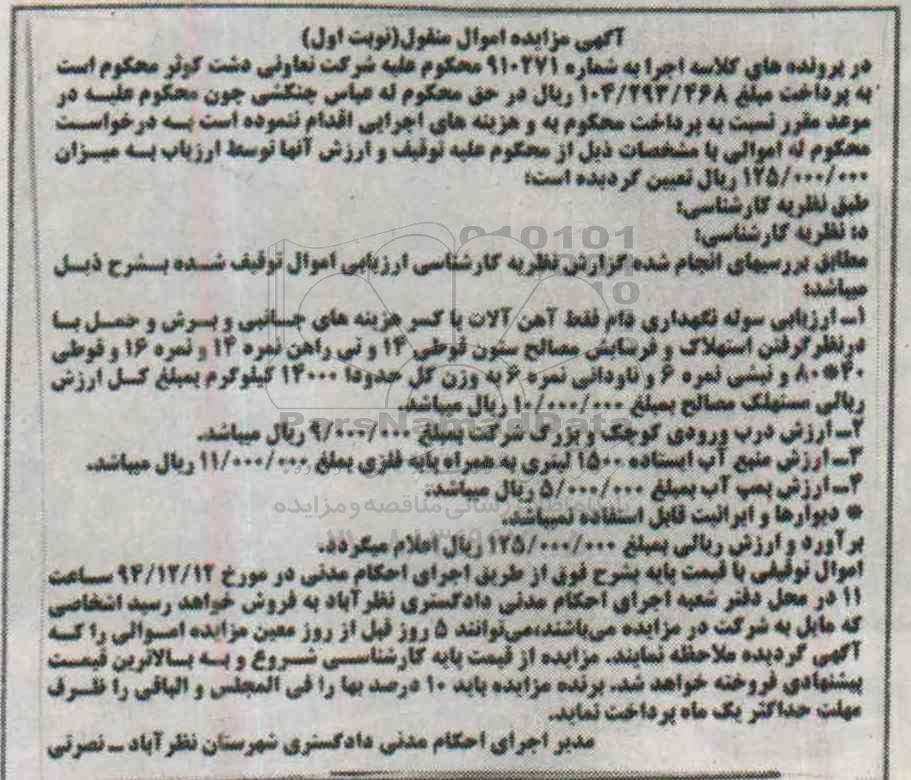 آگهی مزایده اموال منقول(نوبت اول)
در پرونده های کلاسه اجرا به شماره ۹۱۰۲۷۱ محکوم علیه شرکت تعاونی دشت کوثر محکوم است
به پرداخت مبلغ ۱۰۴/۲۹۳/۴۶۸ ریال در حق محکوم له عباس چنکشی چون محکوم علیه در
موعد مقرر نسبت به پرداخت محکوم به و هزینه های اجرایی اقدام ننموده است به درخواست
محکوم له اموالی با مشخصات ذیل از محکوم علیه توقیف و ارزش آنها توسط ارزیاب به میزان
۱۲۵/۰۰۰/۰۰۰ ریال تعیین گردیده است:
طبق نظریه کارشناسی:
د: نظریه کارشناسی:
مطابق بررسیهای انجام شده گزارش نظریه کارشناسی ارزیابی اموال توقیف شده بشرح ذیل
میباشد:
۱ـ ارزیابی سوله نگهداری دام فقط آهن آلات با کسر هزینه های جانبی و برش و حمل با
درنظرگرفتن استهلاک و فرسایش مصالح ستون قوطی ۱۴ و تی راهن نمره ۱۴ و نمره ۱۶ و قوطی
۴۰*۸۰ و نبشی نمره ۶ و ناودانی نمره ۶ به وزن کل حدودا ۱۴۰۰۰ کیلوگرم بمبلغ کل ارزش
ریالی مستهلک مصالح بمبلغ ۱۰/۰۰۰/۰۰۰ ریال میباشد.
۲ـ ارزش درب ورودی کوچک و بزرگ شرکت بمبلغ ۹/۰۰۰/۰۰۰ ریال میباشد.
۳ـ ارزش منبع آب ایستاده ۱۵۰۰ لیتری به همراه پایه فلزی بملغ ۱۱/۰۰۰/۰۰۰ ریال میباشد.
۴ـ ارزش پمپ آب بمبلغ ۵/۰۰۰/۰۰۰ ریال میباشد.
* دیوارها و ایرانیت قابل استفاده نمیباشد.
برآورد و ارزش ریالی بمبلغ ۱۲۵/۰۰۰/۰۰۰ ریال اعلام میگردد.
اموال توقیفی با قیمت پایه بشرح فوق از طریق اجرای احکام مدنی در مورخ ۹۴/۱۲/۱۲ ساعت
۱۱ در محل دفتر شعبه اجرای احکام مدنی دادگستری نظرآباد به فروش خواهد رسید اشخاصی
که مایل به شرکت در مزایده می‌باشند،می‌توانند ۵ روز قبل از روز معین مزایده اموالی را که
آگهی گردیده ملاحظه نمایند. مزایده از قیمت پایه کارشناسی شروع و به بالاترین قیمت
پیشنهادی فروخته خواهد شد. برنده مزایده باید ۱۰ درصد بها را فی المجلس و الباقی را ظرف
مهلت حداکثر یک ماه پرداخت نماید.
مدیر اجرای احکام مدنی دادگستری شهرستان نظرآباد ـ نصرتی
ParsNamadData